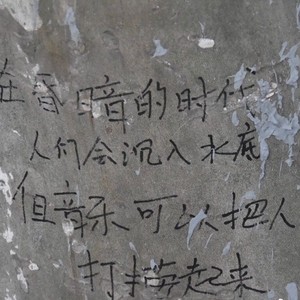 在昏暗的时代
人们会沉入水底
但音乐可以把人
打捞起来